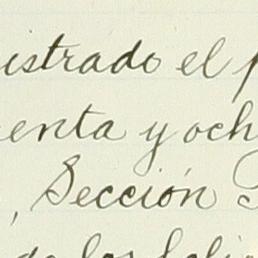 istrado el p
enta y och
, Sección
de los folio